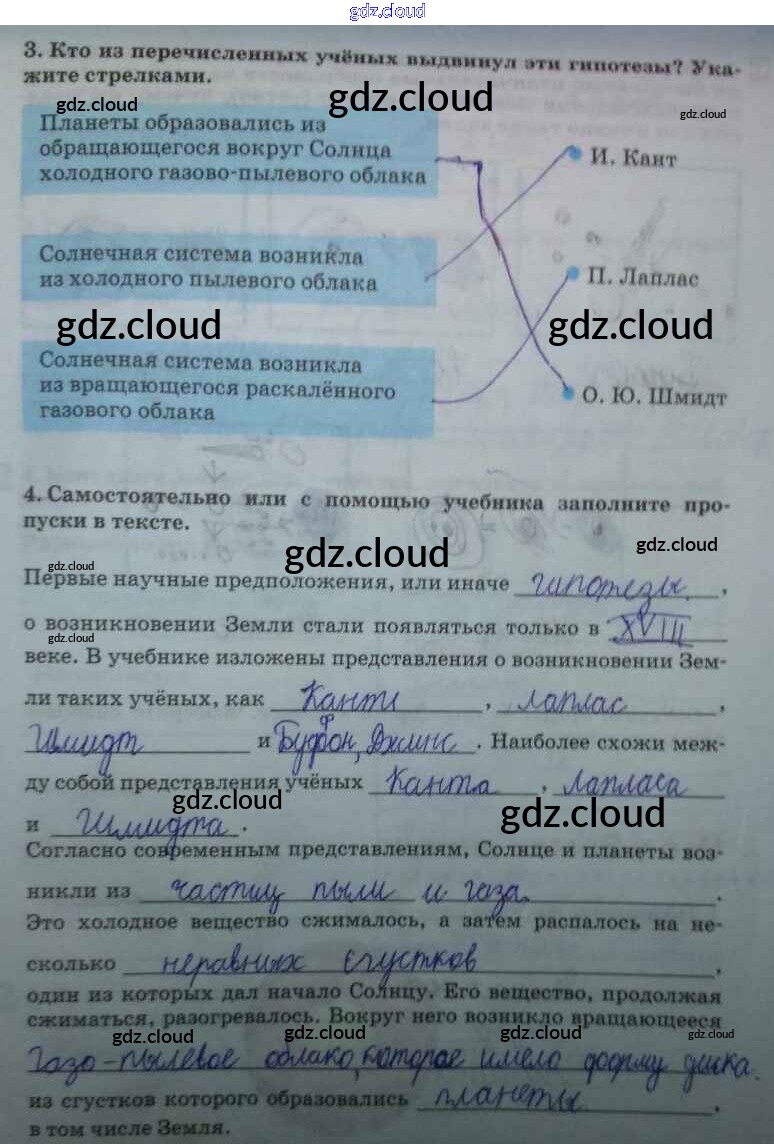 gdz.cloud
3. Кто из перечисленных учёных выдвинул эти гипотезы? Ука-
жите стрелками.
gdz.cloud
gdz.cloud
gdz.cloud
Планеты образовались из
обращающегося вокруг Солнца
холодного газово-пылевого облака
И. Кант
Солнечная система возникла
из холодного пылевого облака
П. Лаплас
gdz.cloud
gdz.cloud
Солнечная система возникла
из вращающегося раскалённого
газового облака
О. Ю. Шмидт
4. Самостоятельно или с помощью учебника заполните про-
пуски в тексте.
gdz.cloud
gdz.cloud
gdz.cloud
Первые научные предположения, или иначе гипотезы,
о возникновении Земли стали появляться только в XVIII
gdz.cloud
веке. В учебнике изложены представления о возникновении Зем-
ли таких учёных, как Кант, лаплас,
Шмидт и Бюфон, Джинс. Наиболее схожи меж-
ду собой представления учёных Канта, лапласа
gdz.cloud
gdz.cloud
и Шмидта.
Согласно современным представлениям, Солнце и планеты воз-
никли из частиц пыли и газа.
Это холодное вещество сжималось, а затем распалось на не-
сколько неравных сгустков,
один из которых дал начало Солнцу. Его вещество, продолжая
сжиматься, разогревалось. Вокруг него возникло вращающееся
gdz.cloud
gdz.cloud
gdz.cloud
gdz.cloud
Газо-пылевое облако, которое имело форму диска.
из сгустков которого образовались планеты,
в том числе Земля.